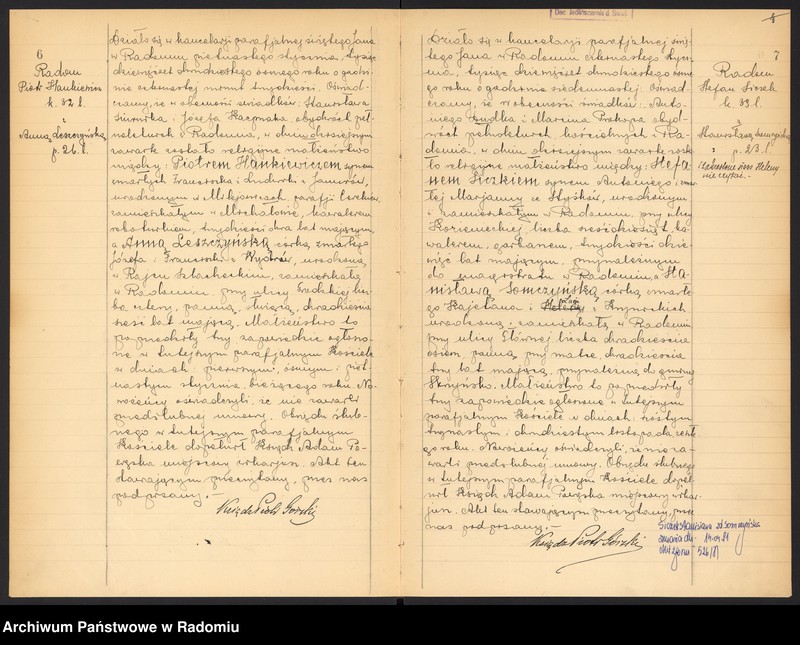 6
Radom
Piotr Hankiewicz
k. 32 l.
i
Anna Leszczyńska
p. 26 l.
Działo się w kancelarji parafjalnej świętego Jana
w Radomiu piętnastego stycznia, tysiąc
dziewięćset dwudziestego ósmego roku o godzi-
nie czwartej minut trzydzieści. Oświad-
czamy, że w obecności świadków: Stanisława
i Józefa Kacprzaka obydwóch peł-
noletnich z Radomia, w dniu dzisiejszym
zawarte zostało religijne małżeństwo
między: Piotrem Hankiewiczem synem
zmarłych Franciszka i Ludwiki z
urodzonym w parafji
zamieszkałym w Michałowie, kawalerem
robotnikiem, trzydzieści dwa lat mającym,
a Anną Leszczyńską córką zmarłego
Józefa i Franciszki z urodzoną
w Rajcu Szlacheckim, zamieszkałą
w Radomiu, przy ulicy Grodzkiej licz-
ba cztery, panną, służącą, dwadzieścia
sześć lat mającą. Małżeństwo to
poprzedziły trzy zapowiedzie ogłoszo-
ne w tutejszym parafjalnym Kościele
w dniach: pierwszym, ósmym i pięt-
nastym stycznia, bieżącego roku. No-
wożeńcy oświadczyli, że nie zawarli
przedślubnej umowy. Obrzędu ślub-
nego w tutejszym parafjalnym
Kościele dopełnił Ksiądz Adam Po-
miejscowy wikarjusz. Akt ten
stawającym przeczytany, przez nas
podpisany.-
Ksiądz Piotr Górski
8
7
Radom
Stefan Siczek
k. 39 l.
i
Stanisława Somczyńska
p. 23 l.
Skreślone słowo Heleny
nie czytać.-
Działo się w kancelarji parafjalnej świę-
tego Jana w Radomiu stycz-
nia, tysiąc dziewięćset dwudziestego ósme-
go roku o godzinie siedemnastej. Oświad-
czamy, że w obecności świadków: Anto-
niego i Marcina Prokopa obyd-
wóch pełnoletnich kościelnych z Ra-
domia, w dniu dzisiejszym zawarte zosta-
ło religijne małżeństwo między: Stefa-
nem Siczkiem synem Antoniego i zmar-
łej Marjanny ze urodzonym
i zamieszkałym w Radomiu, przy ulicy
Kozienieckiej liczba sześćdziesiąt, ka-
walerem, garbarzem, trzydzieści dzie-
więć lat mającym, przynależnym
do magistratu w Radomiu, a Sta-
nisławą Somczyńską córką zmarłe-
go Kajetana i
urodzoną i zamieszkałą w Radomiu
przy ulicy Głównej liczba dwadzieścia
osiem, panną, przy matce, dwadzieścia
trzy lat mającą, przynależną do gminy
Skrzynsko. Małżeństwo to poprzedziły
trzy zapowiedzie ogłoszone w tutejszym
parafjalnym Kościele w dniach: szóstym
trzynastym i dwudziestym listopada, zeszłe-
go roku. Nowożeńcy oświadczyli, że nie za-
warli przedślubnej umowy. Obrzędu ślubnego
w tutejszym parafjalnym Kościele dopeł-
nił Ksiądz Adam miejscowy wikar-
jusz. Akt ten stawającym przeczytany, przez
nas podpisany.-
Ksiądz Piotr Górski
Siczek Stanisława zd Somczyńska
zmarła dn. 14.04.81
akt zgonu 526/81
Archiwum Państwowe w Radomiu